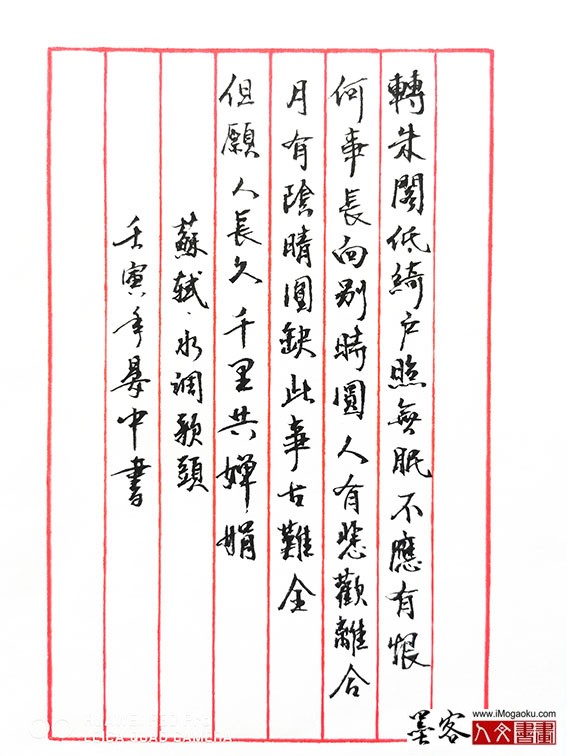 轉朱閣低綺户照無眠不應有恨
何事長向别時圓人有悲歡離合
月有陰晴圓缺此事古難全
但願人長久千里共嬋娟
蘇軾·水調歌頭
壬寅年晏中書
墨客
www.iMogaoku.com
人文書畫
LEICA QUAD CAMERA